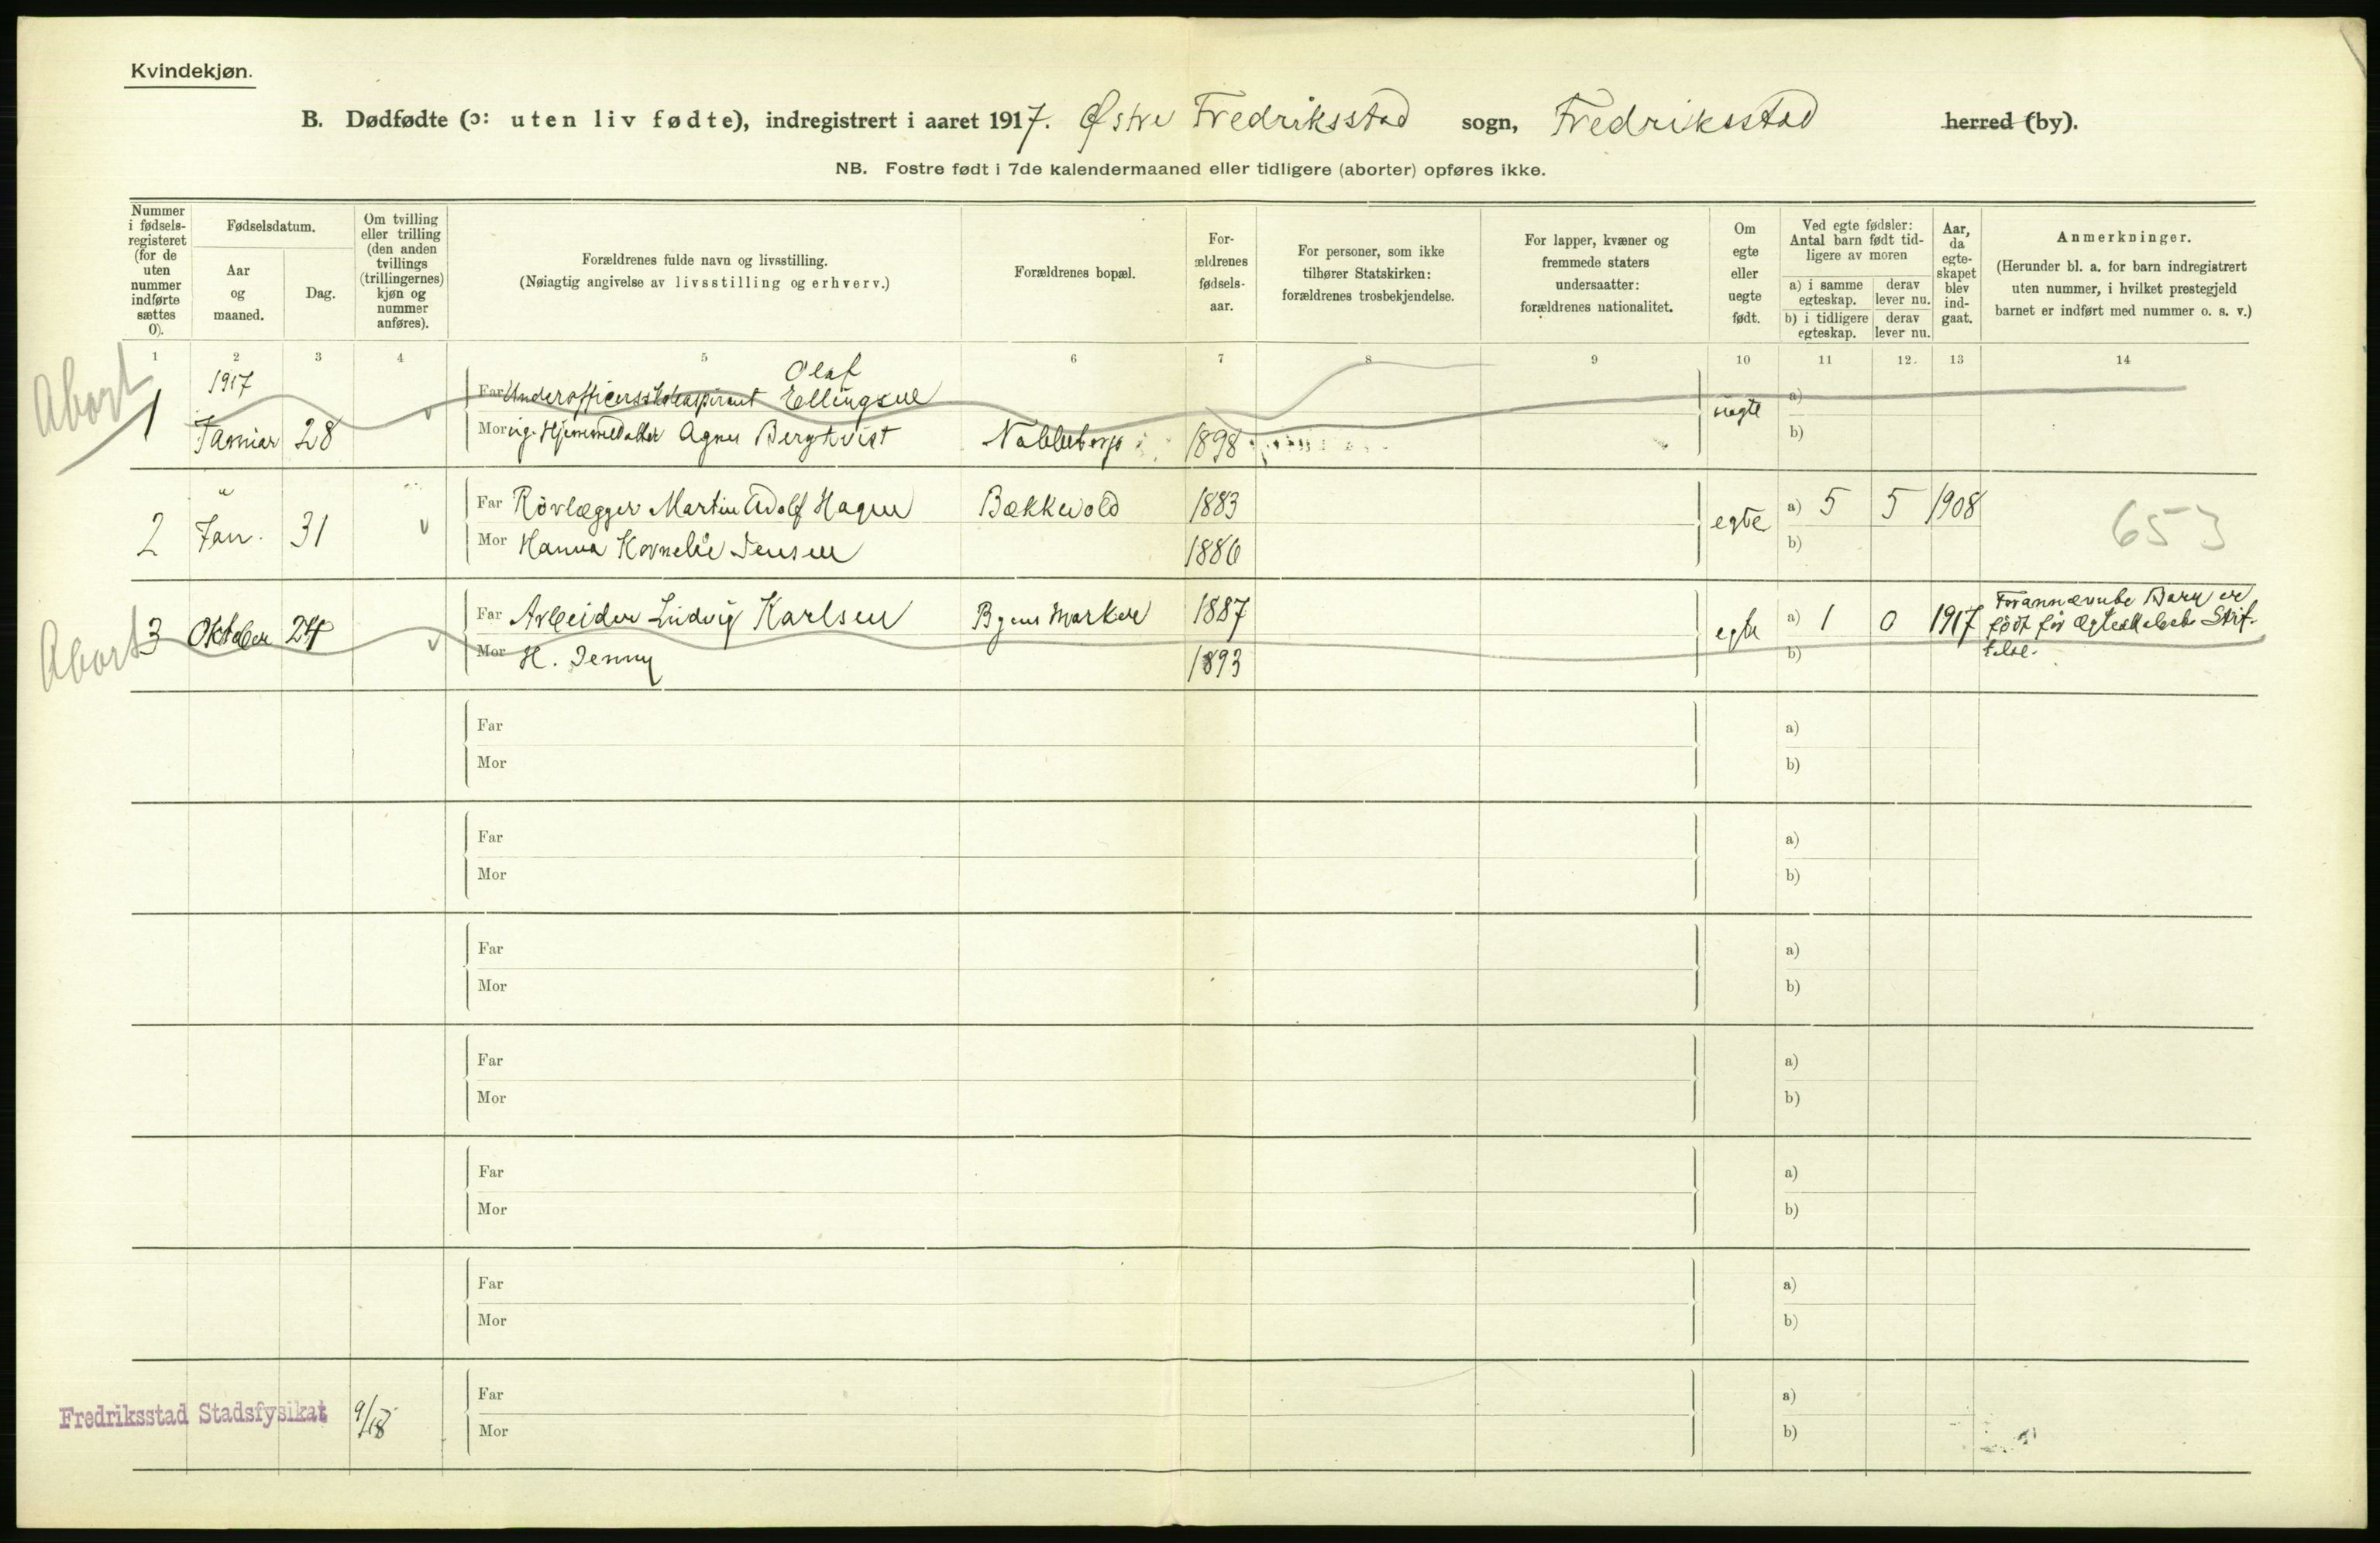 Kvindekjøn.
B. Dødfødte (ɔ: uten liv fødte), indregistrert i aaret 1917. Østre Fredriksstad sogn, Fredriksstad herred (by).
NB. Fostre født i 7de kalendermaaned eller tidligere (aborter) opføres ikke.
Nummer i fødsels-registeret (for de uten nummer indførte sættes 0).
Fødselsdatum.
Aar og maaned.
Dag.
Om tvilling eller trilling (den anden tvillings (trillingernes) kjøn og nummer anføres).
Forældrenes fulde navn og livsstilling.
(Nøiagtig angivelse av livsstilling og erhverv.)
Forældrenes bopæl.
For-ældrenes fødsels-aar.
For personer, som ikke tilhører Statskirken: forældrenes trosbekjendelse.
For lapper, kvæner og fremmede staters undersaatter: forældrenes nationalitet.
Om egte eller uegte født.
Ved egte fødsler: Antal barn født tid-ligere av moren
a) i samme egteskap.
derav lever nu.
b) i tidligere egteskap.
derav lever nu.
Aar, da egte-skapet blev ind-gaat.
Anmerkninger.
(Herunder bl. a. for barn indregistrert uten nummer, i hvilket prestegjeld barnet er indført med nummer o. s. v.)
1 2 3 4 5 6 7 8 9 10 11 12. 13 14
Abort
1917
Olaf
Far Ellingsen
uegte a)
1 Januar 28 v Mor ug. Hjemmedatter Agnes Bergkvist Nabbetorp 1898 b)
"
Far Rörlægger Martin Adolf Hagen Bækkevold 1883 a) 5 5 1908
2 Jan. 31 v egte 653
Mor Hanna Kornelie Jensen 1886 b)
Abort
Far Arbeider Ludvig Karlsen Byens Marker 1887 a) 1 0 1917 Forannævnte Barn er
3 Oktober 24 v egte født før Ægteskabets Stif-
Mor H. Jenny 1893 b) telse.
Far a)
Mor b)
Far a)
Mor b)
Far a)
Mor b)
Far a)
Mor b)
Far a)
Mor b)
Far a)
Mor b)
Far a)
Fredriksstad Stadsfysikat
Mor b)